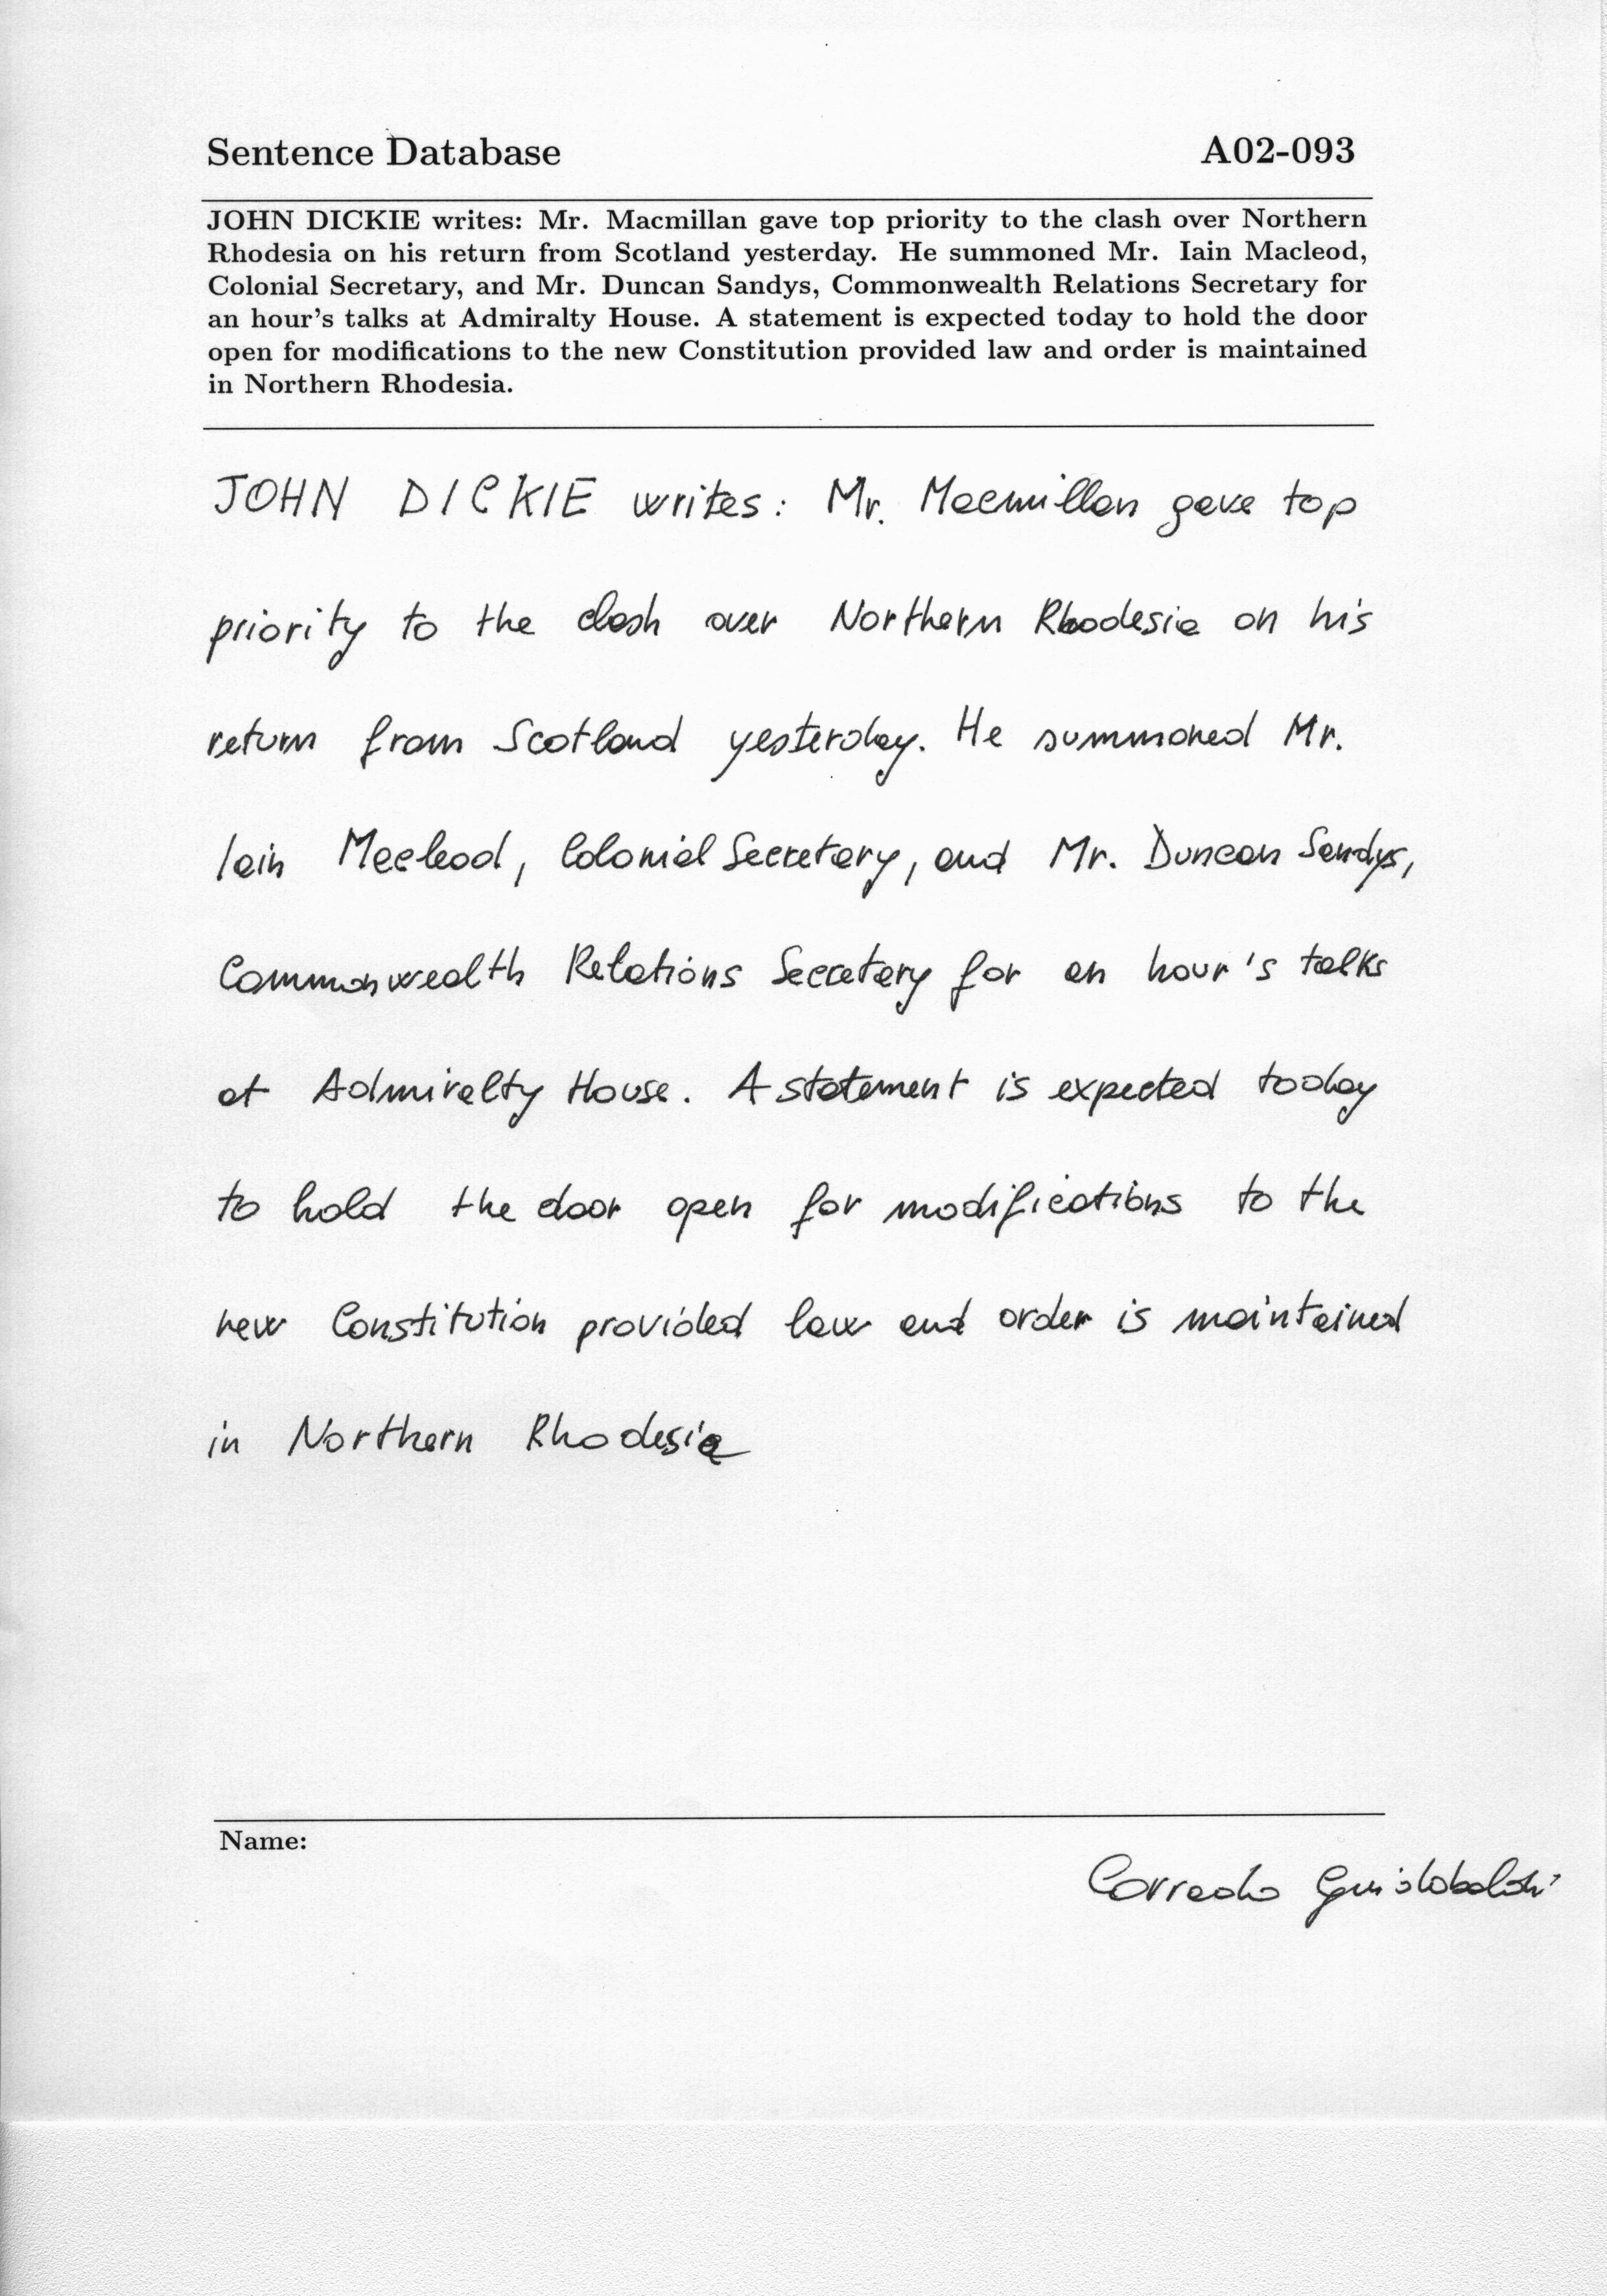 Sentence Database A02-093
JOHN DICKIE writes: Mr. Macmillan gave top priority to the clash over Northern
Rhodesia on his return from Scotland yesterday. He summoned Mr. Iain Macleod,
Colonial Secretary, and Mr. Duncan Sandys, Commonwealth Relations Secretary for
an hour's talks at Admiralty House. A statement is expected today to hold the door
open for modifications to the new Constitution provided law and order is maintained
in Northern Rhodesia.
JOHN DICKIE writes: Mr. Macmillan gave top
priority to the clash over Northern Rhodesia on his
return from Scotland yesterday. He summoned Mr.
Iain Macleod, Colonial Secretary, and Mr. Duncan Sandys,
Commonwealth Relations Secretary for an hour's talks
at Admiralty House. A statement is expected today
to hold the door open for modifications to the
new Constitution provided law and order is maintained
in Northern Rhodesia
Name:
Corrado